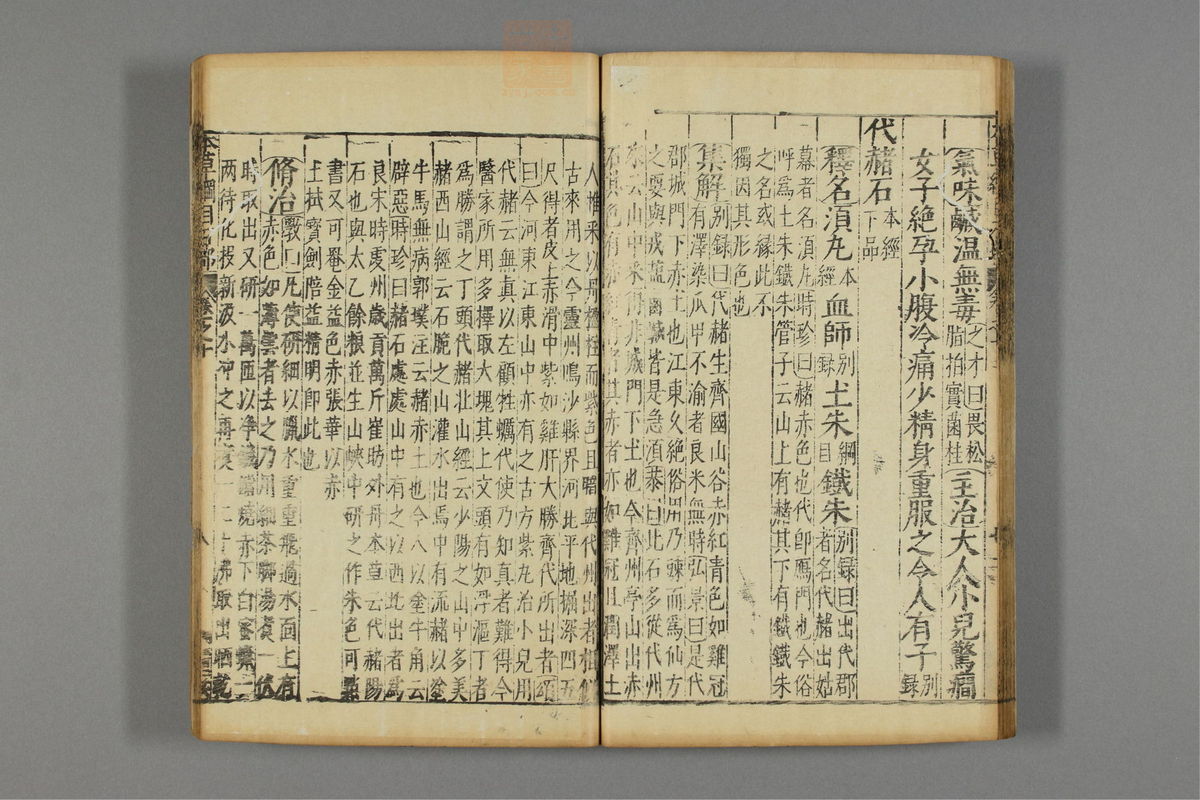 氣味鹹溫無毒之才曰畏松脂拍實菌桂主治大人小兒驚癇
女子絶孕小腹冷痛少精身重服之令人有子別録
代赭石本經下品
釋名湏丸本經血師別録土朱綱目鐵朱別録曰出代郡者名代赭出姑
幕者名湏丸時珍曰赭赤色也代即鴈門也今俗
呼爲土朱鐵朱管子云山上有赭其下有鐵鐵朱
之名或縁此不
獨因其形色也
集解別録曰代赭生齊國山谷赤紅青色如雞冠
有澤染瓜甲不渝者良米無時弘景曰是代
郡城門下赤土也江東久絶俗用乃疎而爲仙方
之要與戎鹽鹵鹹皆是急湏恭曰此石多從代州
來云山中采得非城門下土也今齊州亭山出赤
石其色有赤者其赤者亦如雞冠且潤澤土
人惟采以丹楹柱而紫色且暗與代州出者相似
古來用之今靈州鳴沙縣界河北平地掘深四五
尺得者皮上赤滑中紫如雞肝大勝齊代所出者頌
曰今河東江東山中亦有之古方紫丸治小兒用
代赭云無眞以左顧牡蠣代使乃知真者難得今
醫家所用多擇取大塊其上文頭有如浮漚丁者
爲勝謂之丁頭代赭北山經云少陽之山中多美
赭西山經云石脆之山灌水出焉中有流赭以塗
牛馬無病郭璞注云赭赤土也今人以塗牛角云
辟惡時珍曰赭石處處山中有之以西北出者爲
良宋時䖍州歲貢萬斤崔昉外丹本草云代赭陽
石也與太乙餘粮並生山峽中研之作朱色可㸃
書又可罨金益色赤張華以赤
土拭寳劍陪益精明即此也
脩治斆曰凡使研細以臘水重重飛過水面上有
赤色如薄雲者去之乃用細茶脚湯煑一伏
時取出又研一萬匝以淨鐵鐺燒赤下白蜜蠟一
兩待化投新汲水冲之再煑一二十沸取出晒乾
本草綱目石部
卷之十